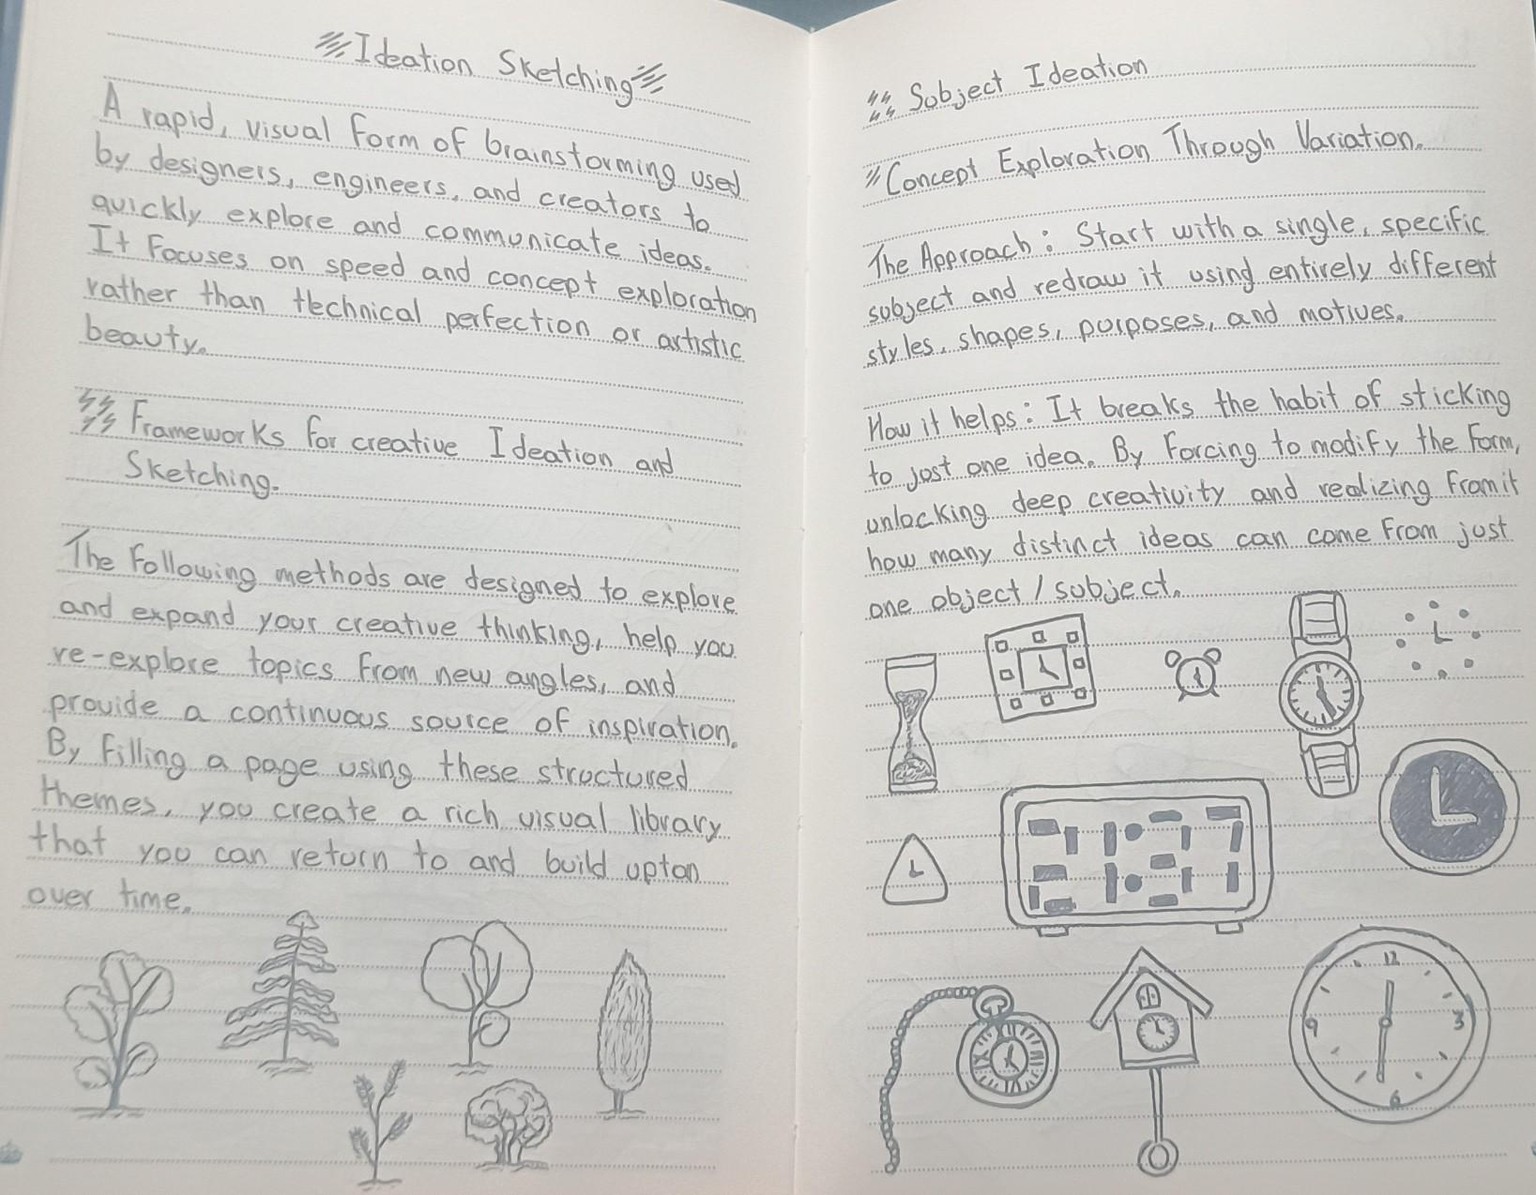 Ideation Sketching
A rapid, visual form of brainstorming used
by designers, engineers, and creators to
quickly explore and communicate ideas.
It focuses on speed and concept exploration
rather than technical perfection or artistic
beauty.
Frameworks for creative Ideation and
Sketching.
The following methods are designed to explore
and expand your creative thinking, help you
re-explore topics from new angles, and
provide a continuous source of inspiration.
By filling a page using these structured
themes, you create a rich visual library
that you can return to and build upton
over time.
Subject Ideation
Concept Exploration Through Variation.
The Approach: Start with a single, specific
subject and redraw it using entirely different
styles, shapes, purposes, and motives.
How it helps: It breaks the habit of sticking
to just one idea. By forcing to modify the form,
unlocking deep creativity and realizing from it
how many distinct ideas can come from just
one object / subject.
12
9 3
6